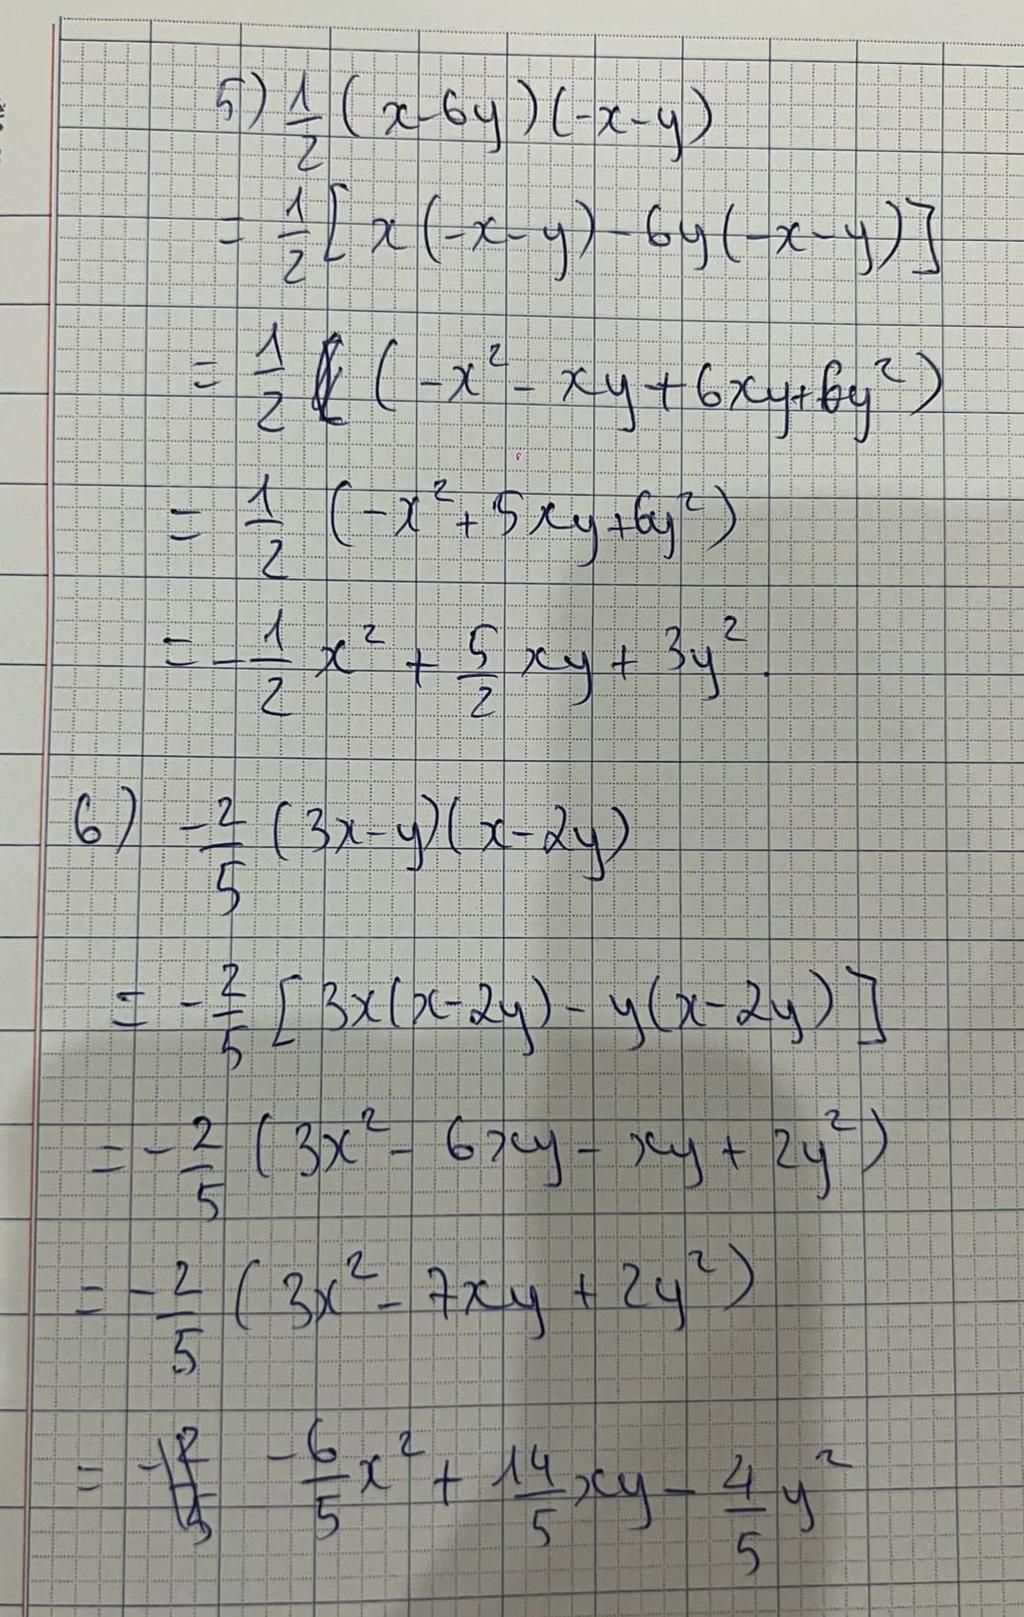 5) 1/2 (x-6y)(-x-y)
= 1/2 [x(-x-y)-6y(-x-y)]
= 1/2 (-x²-xy+6xy+6y²)
= 1/2 (-x²+5xy+6y²)
= -1/2 x² + 5/2 xy + 3y².
6) -2/5 (3x-y)(x-2y)
= -2/5 [3x(x-2y)-y(x-2y)]
= -2/5 (3x²-6xy-xy+2y²)
= -2/5 (3x²-7xy+2y²)
= -6/5 x² + 14/5 xy - 4/5 y²